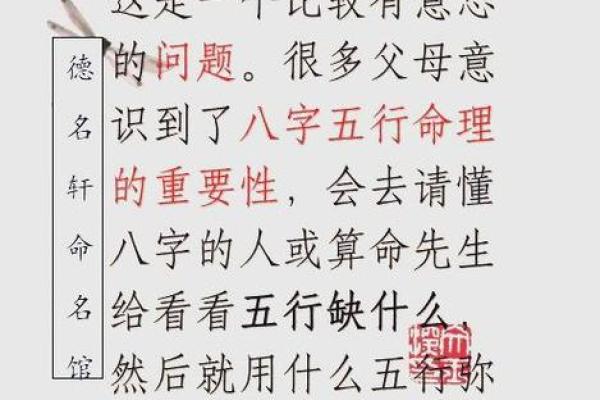 这是一个比较有意思
的问题。很多父母意
识到了八字五行命理
的重要性，会去请懂
八字的人或算命先生
给看看五行缺什么，
然后就用什么五行弥
德名轩命名馆